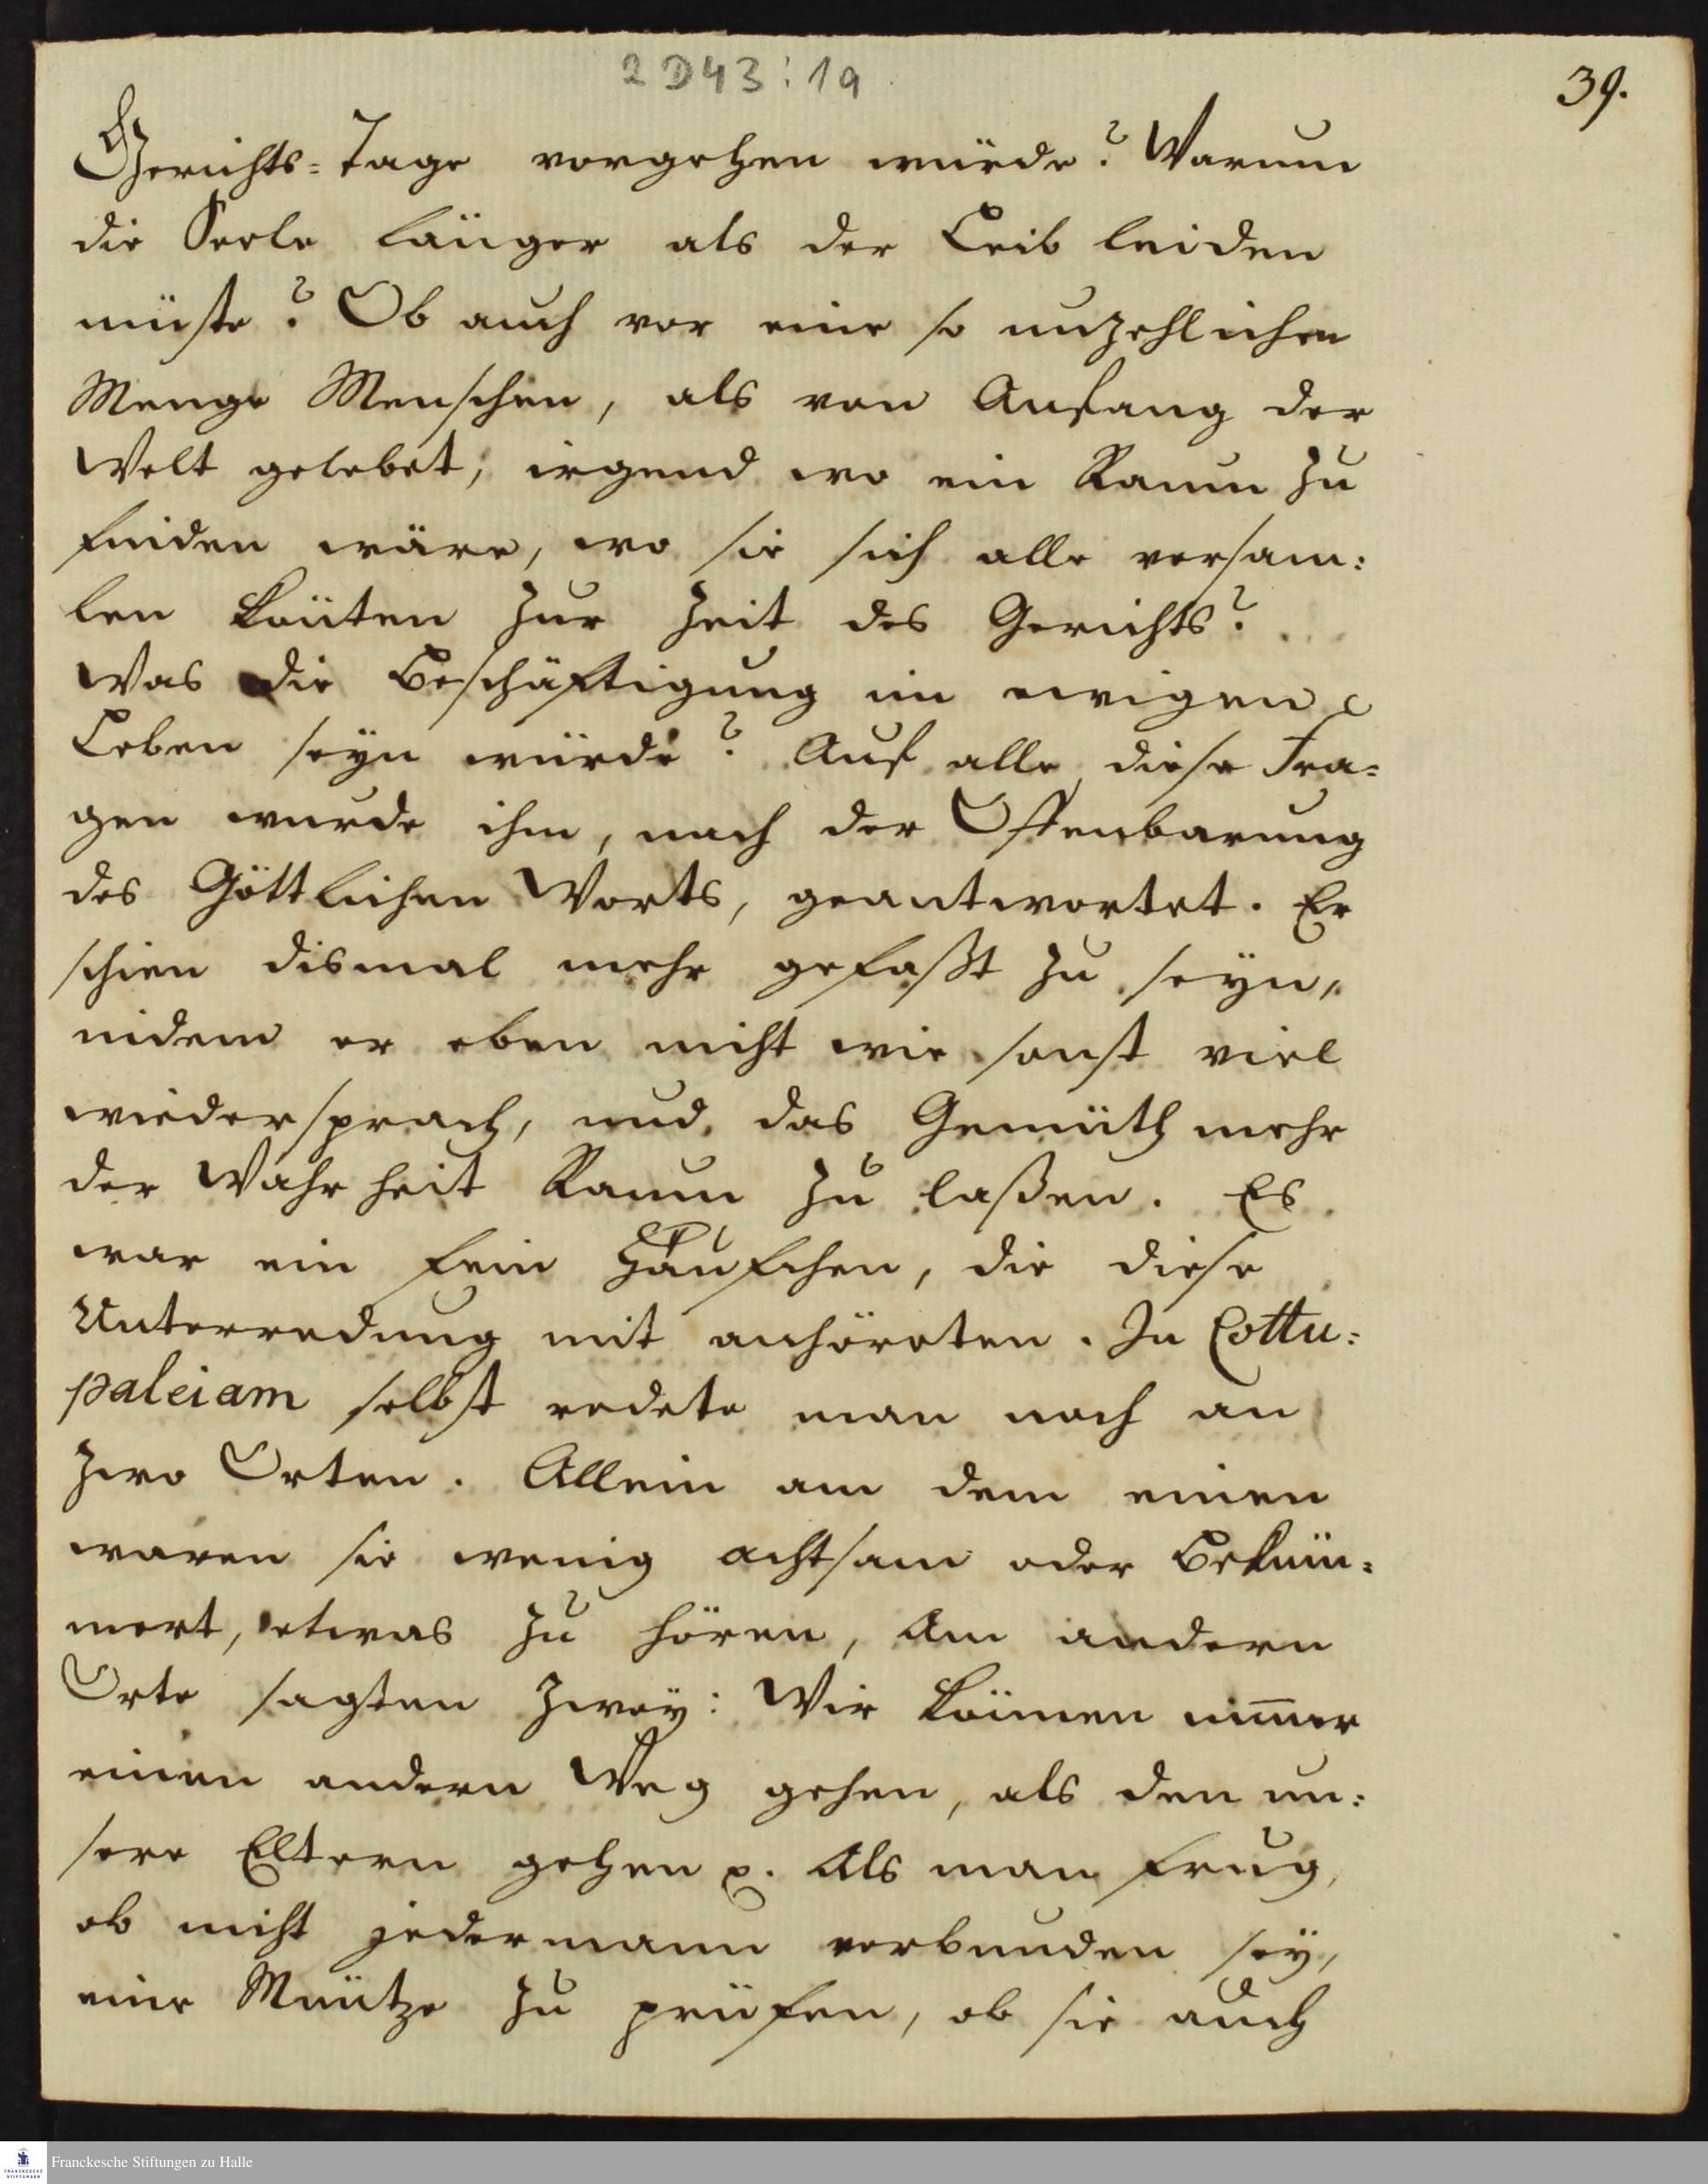 2 D43 : 19
39.
Gerichts-Tage vorgehen würde? Warum
die Seele länger als der Leib leiden
müste? Ob auch vor eine so unzehlichen
Menge Menschen, als von Anfang der
Welt gelebet, irgend wo ein Raum zu
finden wäre, wo sie sich alle versam:
len könten zur Zeit des Gerichts?
Was die Beschäftigung im ewigen
Leben seyn würde? Auf alle diese Fra-
gen wurde ihm, nach der Offenbarung
des Göttlichen Worts, geantwortet. Er
schien dismal mehr gefaßt zu seyn,
indem er eben nicht wie sonst viel
wiedersprach, und das Gemüth mehr
der Wahrheit Raum zu laßen. Es
war ein fein Häufchen, die diese
Unterredung mit anhöreten. In Cottu:
paleiam selbst redete man noch an
zwo Orten. Allein am dem einen
waren sie wenig achtsam oder Beküm:
mert, etwas zu hören, Am andern
Orte sagten zwey: Wir können nimer
einen andern Weg gehen, als den un:
sere Eltern gehen p. Als man frug,
ob nicht jedermann verbunden sey,
eine Müntze zu prüfen, ob sie auch
Franckesche Stiftungen zu Halle